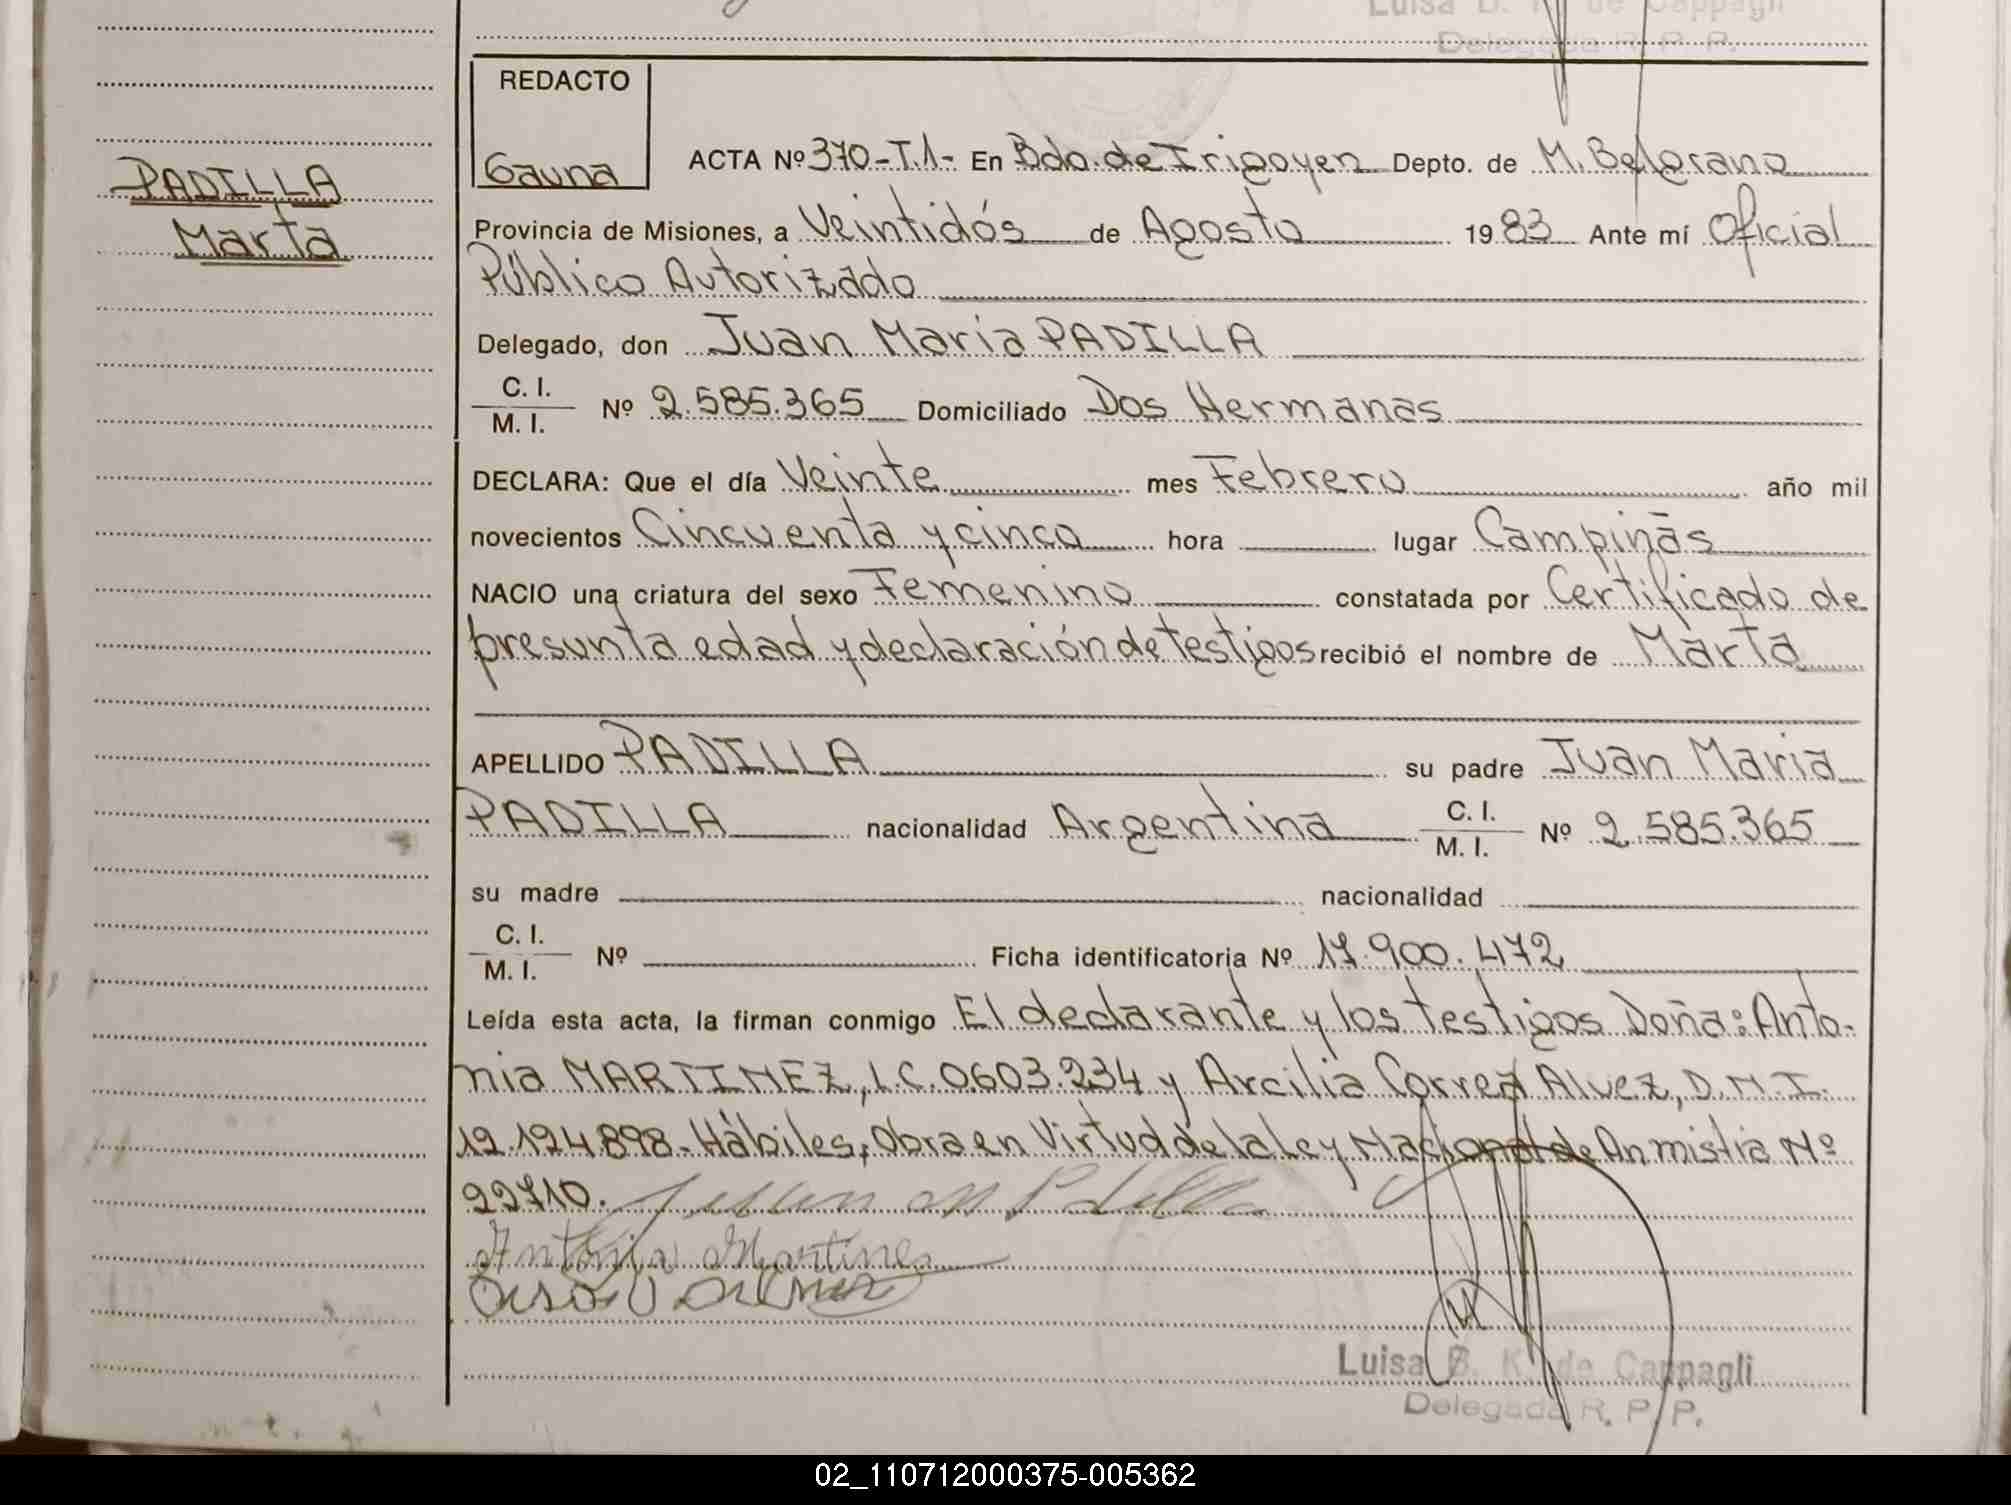 Luisa B. K. de Cappagli
Delegada R. P. P.
REDACTO
Gauna
PADILLA
Marta
ACTA Nº 370-T.1- En Bdo. de Irigoyen Depto. de M. Belgrano
Provincia de Misiones, a Veintidós de Agosto 1983 Ante mí Oficial
Público Autorizado
Delegado, don Juan María PADILLA
C. I.
M. I. Nº 2.585.365 Domiciliado Dos Hermanas
DECLARA: Que el día Veinte mes Febrero año mil
novecientos Cincuenta y cinco hora lugar Campiñas
NACIO una criatura del sexo Femenino constatada por Certificado de
presunta edad y declaración de testigos recibió el nombre de Marta
APELLIDO PADILLA su padre Juan María
PADILLA nacionalidad Argentina C. I. M. I. Nº 2.585.365
su madre nacionalidad
C. I.
M. I. Nº Ficha identificatoria Nº 17.900.472
Leída esta acta, la firman conmigo El declarante y los testigos Doña: Anto-
nia MARTINEZ, L.C. 0.603.234 y Arcilia Correa Alvez, D.N.I.
12.124.898- Hábiles, Obra en Virtud de la ley Nacional de Anmistia Nº
22710.
Juan M Padilla
Antonia Martinez
Luisa B. K. de Cappagli
Delegada R. P. P.
02_110712000375-005362